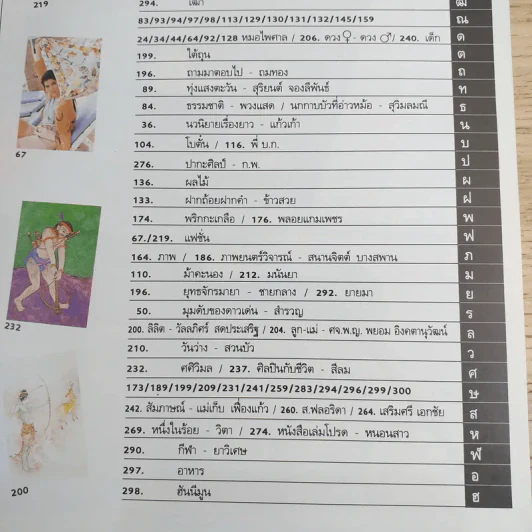 219
294. เฒ่า ฒ
83/93/94/97/98/113/129/130/131/132/145/159 ณ
24/34/44/64/92/128 หมอไพศาล / 206. ดวง♀- ดวง ♂/ 240. เด็ก ด
199. ใต้ถุน ต
196. ถามมาตอบไป - ถมทอง ถ
89. ทุ่งแสงตะวัน - สุริยนต์ จองลีพันธ์ ท
84. ธรรมชาติ - พวงแสด / นกกาบบัวที่อ่าวหม้อ - สุวิมลมณี ธ
36. นวนิยายเรื่องยาว - แก้วเก้า น
104. โบตั๋น / 116. พี่ บ.ก. บ
276. ปาถะศิลป์ - ก.พ. ป
136. ผลไม้ ผ
133. ฝากถ้อยฝากคำ - ข้าวสวย ฝ
174. พริกกะเกลือ / 176. พลอยแกมเพชร พ
67./219. แฟชั่น ฟ
164. ภาพ / 186. ภาพยนตร์วิจารณ์ - สนานจิตต์ บางสพาน ภ
110. ม้าคะนอง / 212. มนันยา ม
196. ยุทธจักรมายา - ชายกลาง / 292. ยายมา ย
50. มุมดับของดาวเด่น - สำรวญ ร
200. ลิลิต - วัลลภิศร์ สดประเสริฐ / 204. ลูก-แม่ - ศจ.พ.ญ. พยอม อิงคตานุวัฒน์ ล
210. วันว่าง - สวนบัว ว
232. ศศิวิมล / 237. ศิลปินกับชีวิต - สีลม ศ
173/189/199/209/231/241/259/283/294/296/299/300 ษ
242. สัมภาษณ์ - แม่เก็บ เฟื่องแก้ว / 260. ส.ฟลอริดา / 264. เสริมศรี เอกชัย ส
269. หนึ่งในร้อย - วิตา / 274. หนังสือเล่มโปรด - หนอนสาว ห
290. กีฬา - ยาวิเศษ ฬ
297. อาหาร อ
298. ฮันนีมูน ฮ
67
232
200